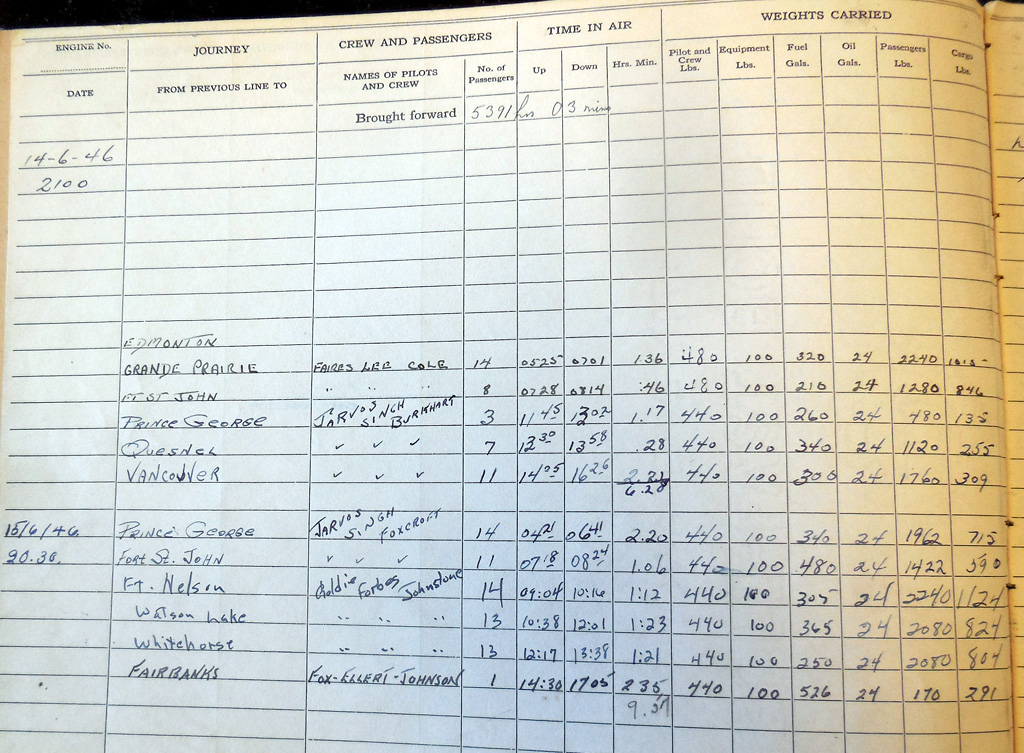 ENGINE No. JOURNEY CREW AND PASSENGERS TIME IN AIR WEIGHTS CARRIED
DATE FROM PREVIOUS LINE TO NAMES OF PILOTS AND CREW No. of Passengers Up Down Hrs. Min. Pilot and Crew Lbs. Equipment Lbs. Fuel Gals. Oil Gals. Passengers Lbs. Cargo Lbs.
Brought forward 5391 hrs 03 mins
14-6-46
2100
EDMONTON
GRANDE PRAIRIE FAIRES LEE COLE 14 0525 0701 1.36 480 100 320 24 2240 1015
FT ST JOHN " " " 8 0728 0814 :46 480 100 210 24 1280 846
PRINCE GEORGE JARVOS SINGH BURKHART 3 1145 1302 1.17 440 100 260 24 480 135
QUESNEL ✓ ✓ ✓ 7 1330 1358 .28 440 100 340 24 1120 255
VANCOUVER ✓ ✓ ✓ 11 1405 1626 2.21 440 100 300 24 1760 309
6.28
15/6/46 PRINCE GEORGE JARVOS SINGH FOXCROFT 14 0421 0641 2.20 440 100 340 24 1962 715
20.30. FORT ST. JOHN ✓ ✓ ✓ 11 0718 0824 1.06 440 100 480 24 1422 590
FT. Nelson Goldie Forbes Johnstone 14 09:04 10:16 1:12 440 100 305 24 2240 1124
Watson Lake " " " 13 10:38 12:01 1:23 440 100 365 24 2080 824
Whitehorse " " " 13 12:17 13:38 1:21 440 100 250 24 2080 804
FAIRBANKS FOX-ELLERT-JOHNSON 1 14:30 1705 2 35 440 100 526 24 170 291
9.57